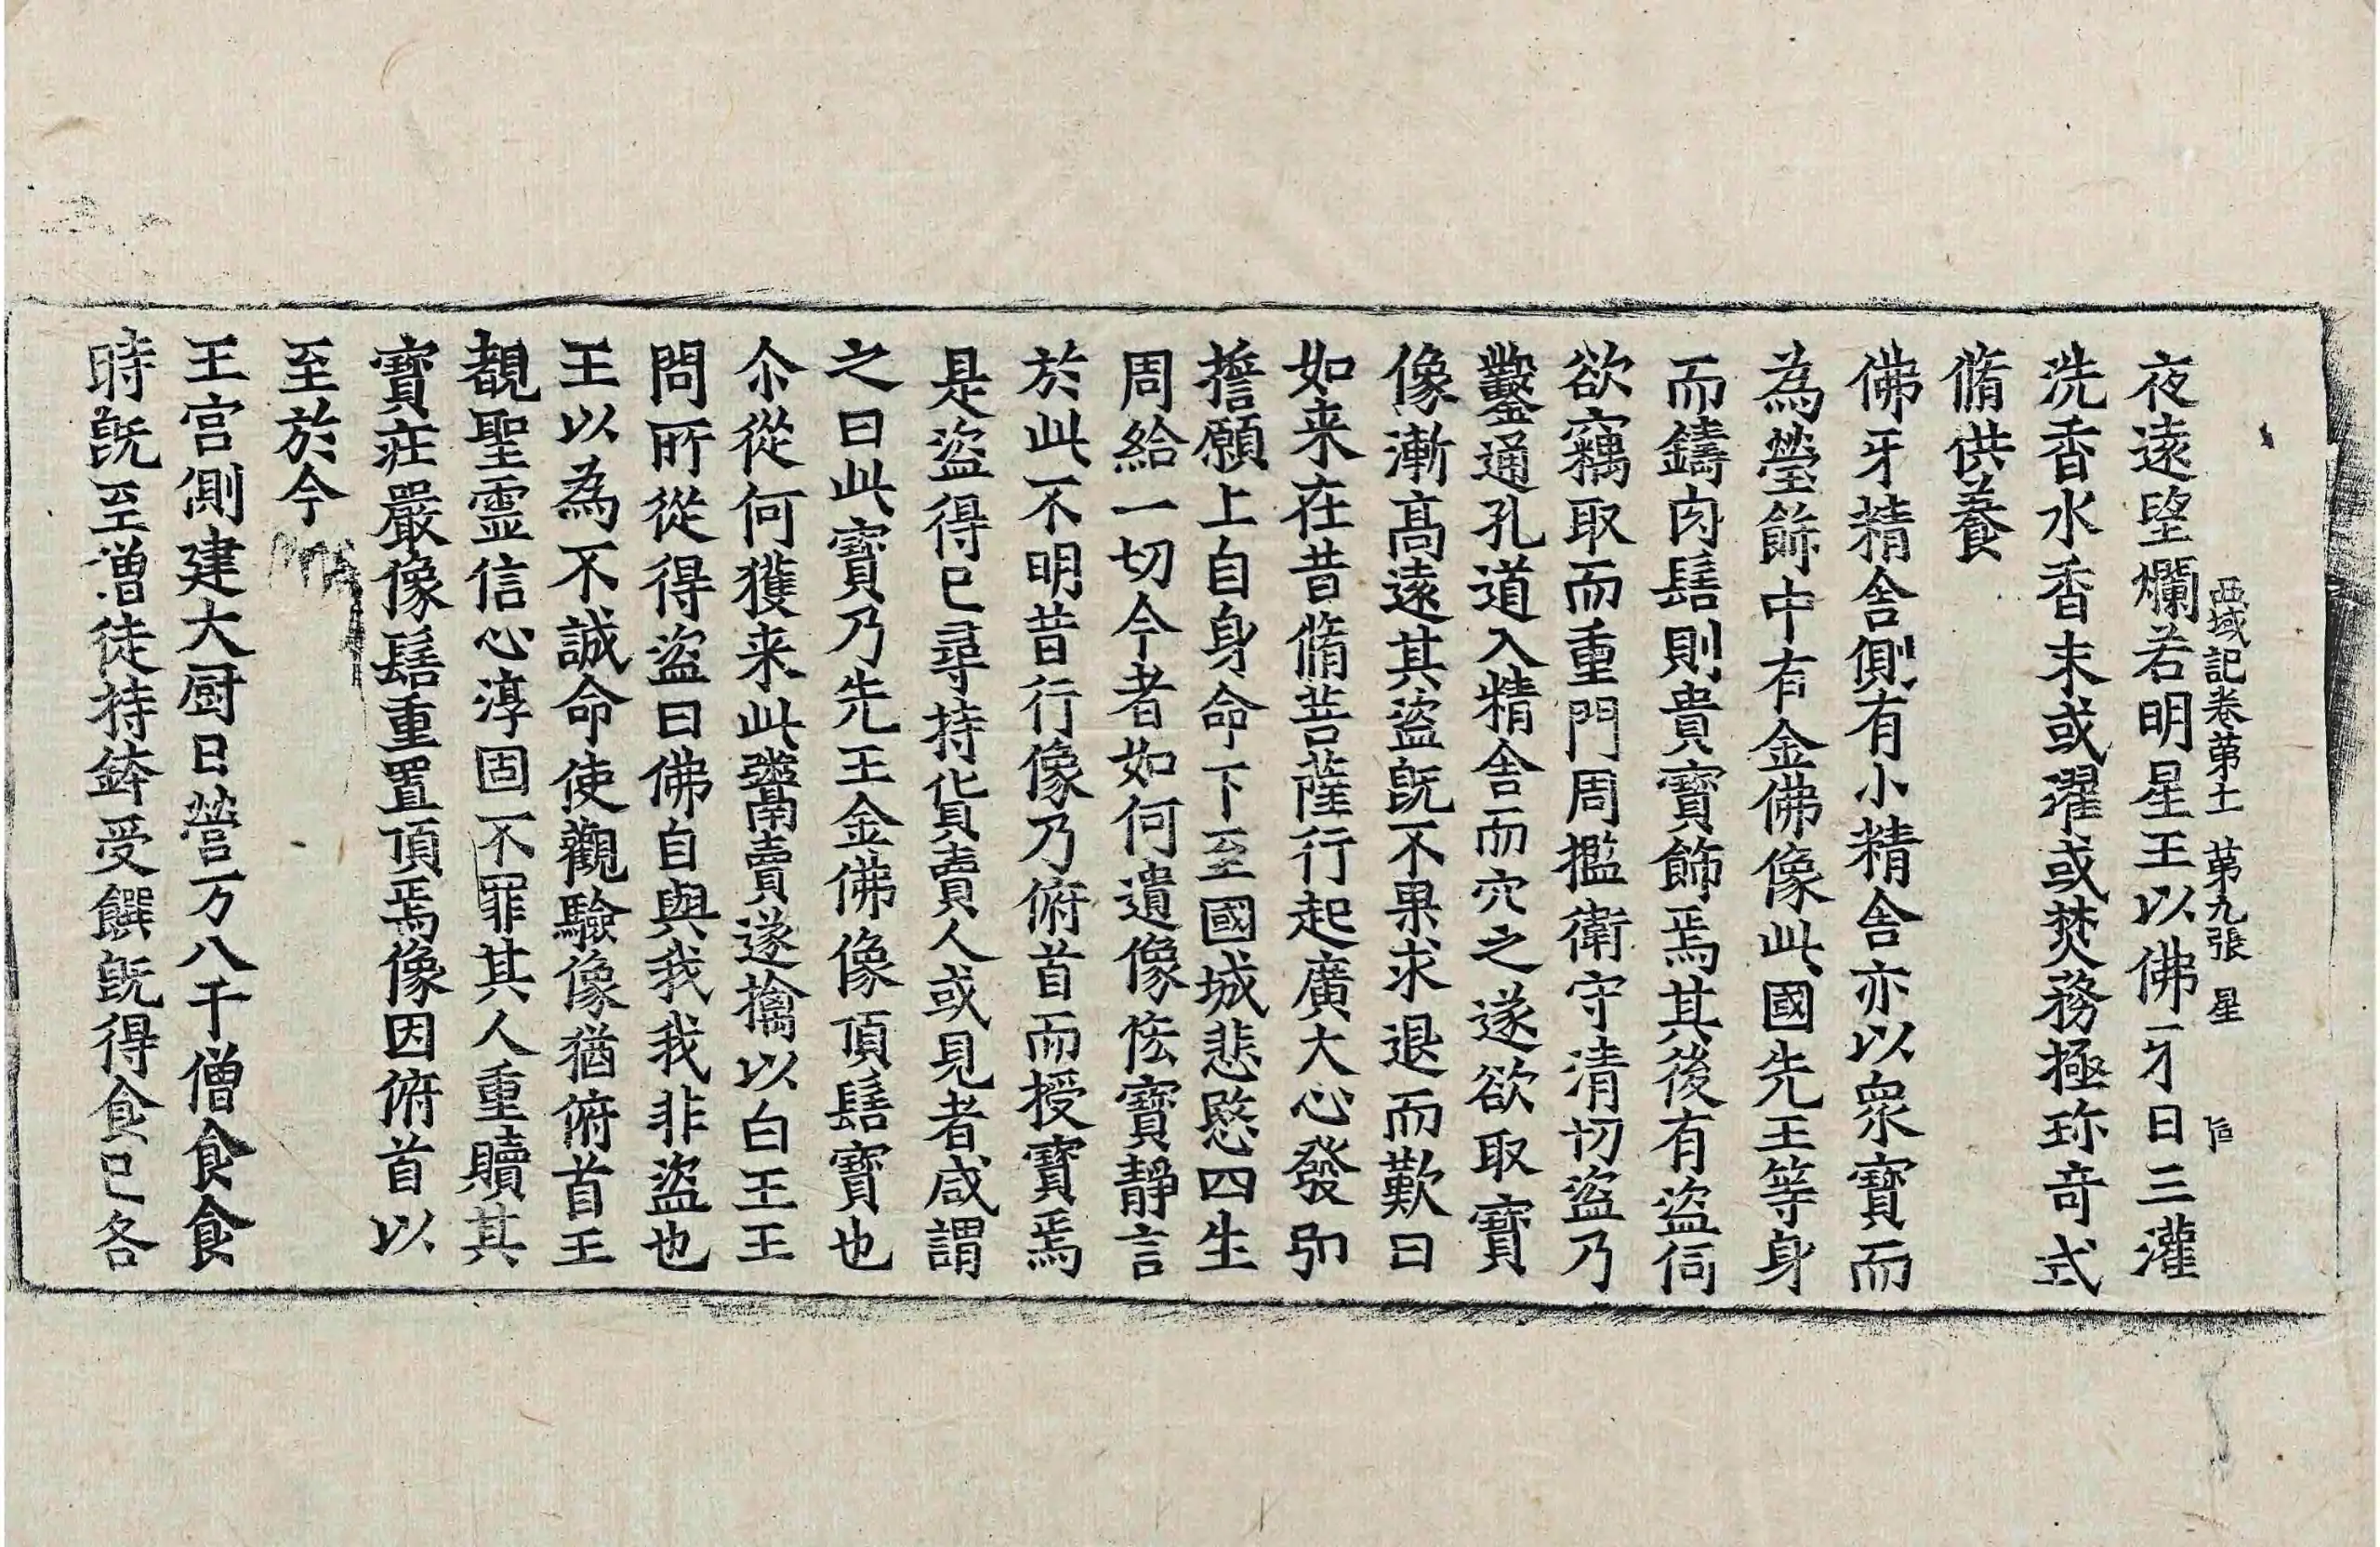 西域記卷苐十一 苐九張 星
夜遠望爛若明星王以佛牙日三灌
洗香水香末或濯或焚務極珎奇式
脩供養
佛牙精舍側有小精舍亦以衆寶而
為瑩飾中有金佛像此國先王等身
而鑄肉髻則貴寶飾焉其後有盜伺
欲竊取而重門周檻衛守清切盜乃
鑿通孔道入精舍而穴之遂欲取寶
像漸髙遠其盜旣不果求退而歎曰
如来在昔脩菩薩行起廣大心發弘
擔願上自身命下至國城悲愍四生
周給一切今者如何遺像恡寶靜言
於此不明昔行像乃俯首而授寶焉
是盜得已尋持貨賣人或見者咸謂
之曰此寶乃先王金佛像頂髻寶也
尒從何獲来此鬻賣遂擒以白王王
問所從得盜曰佛自與我我非盜也
王以為不誠命使觀驗像猶俯首王
覩聖霊信心淳固不罪其人重贖其
寶莊嚴像髻重置頂焉像因俯首以
至於今
王宫側建大厨日營万八千僧食食
時旣至僧徒持鉢受饌旣得食已各